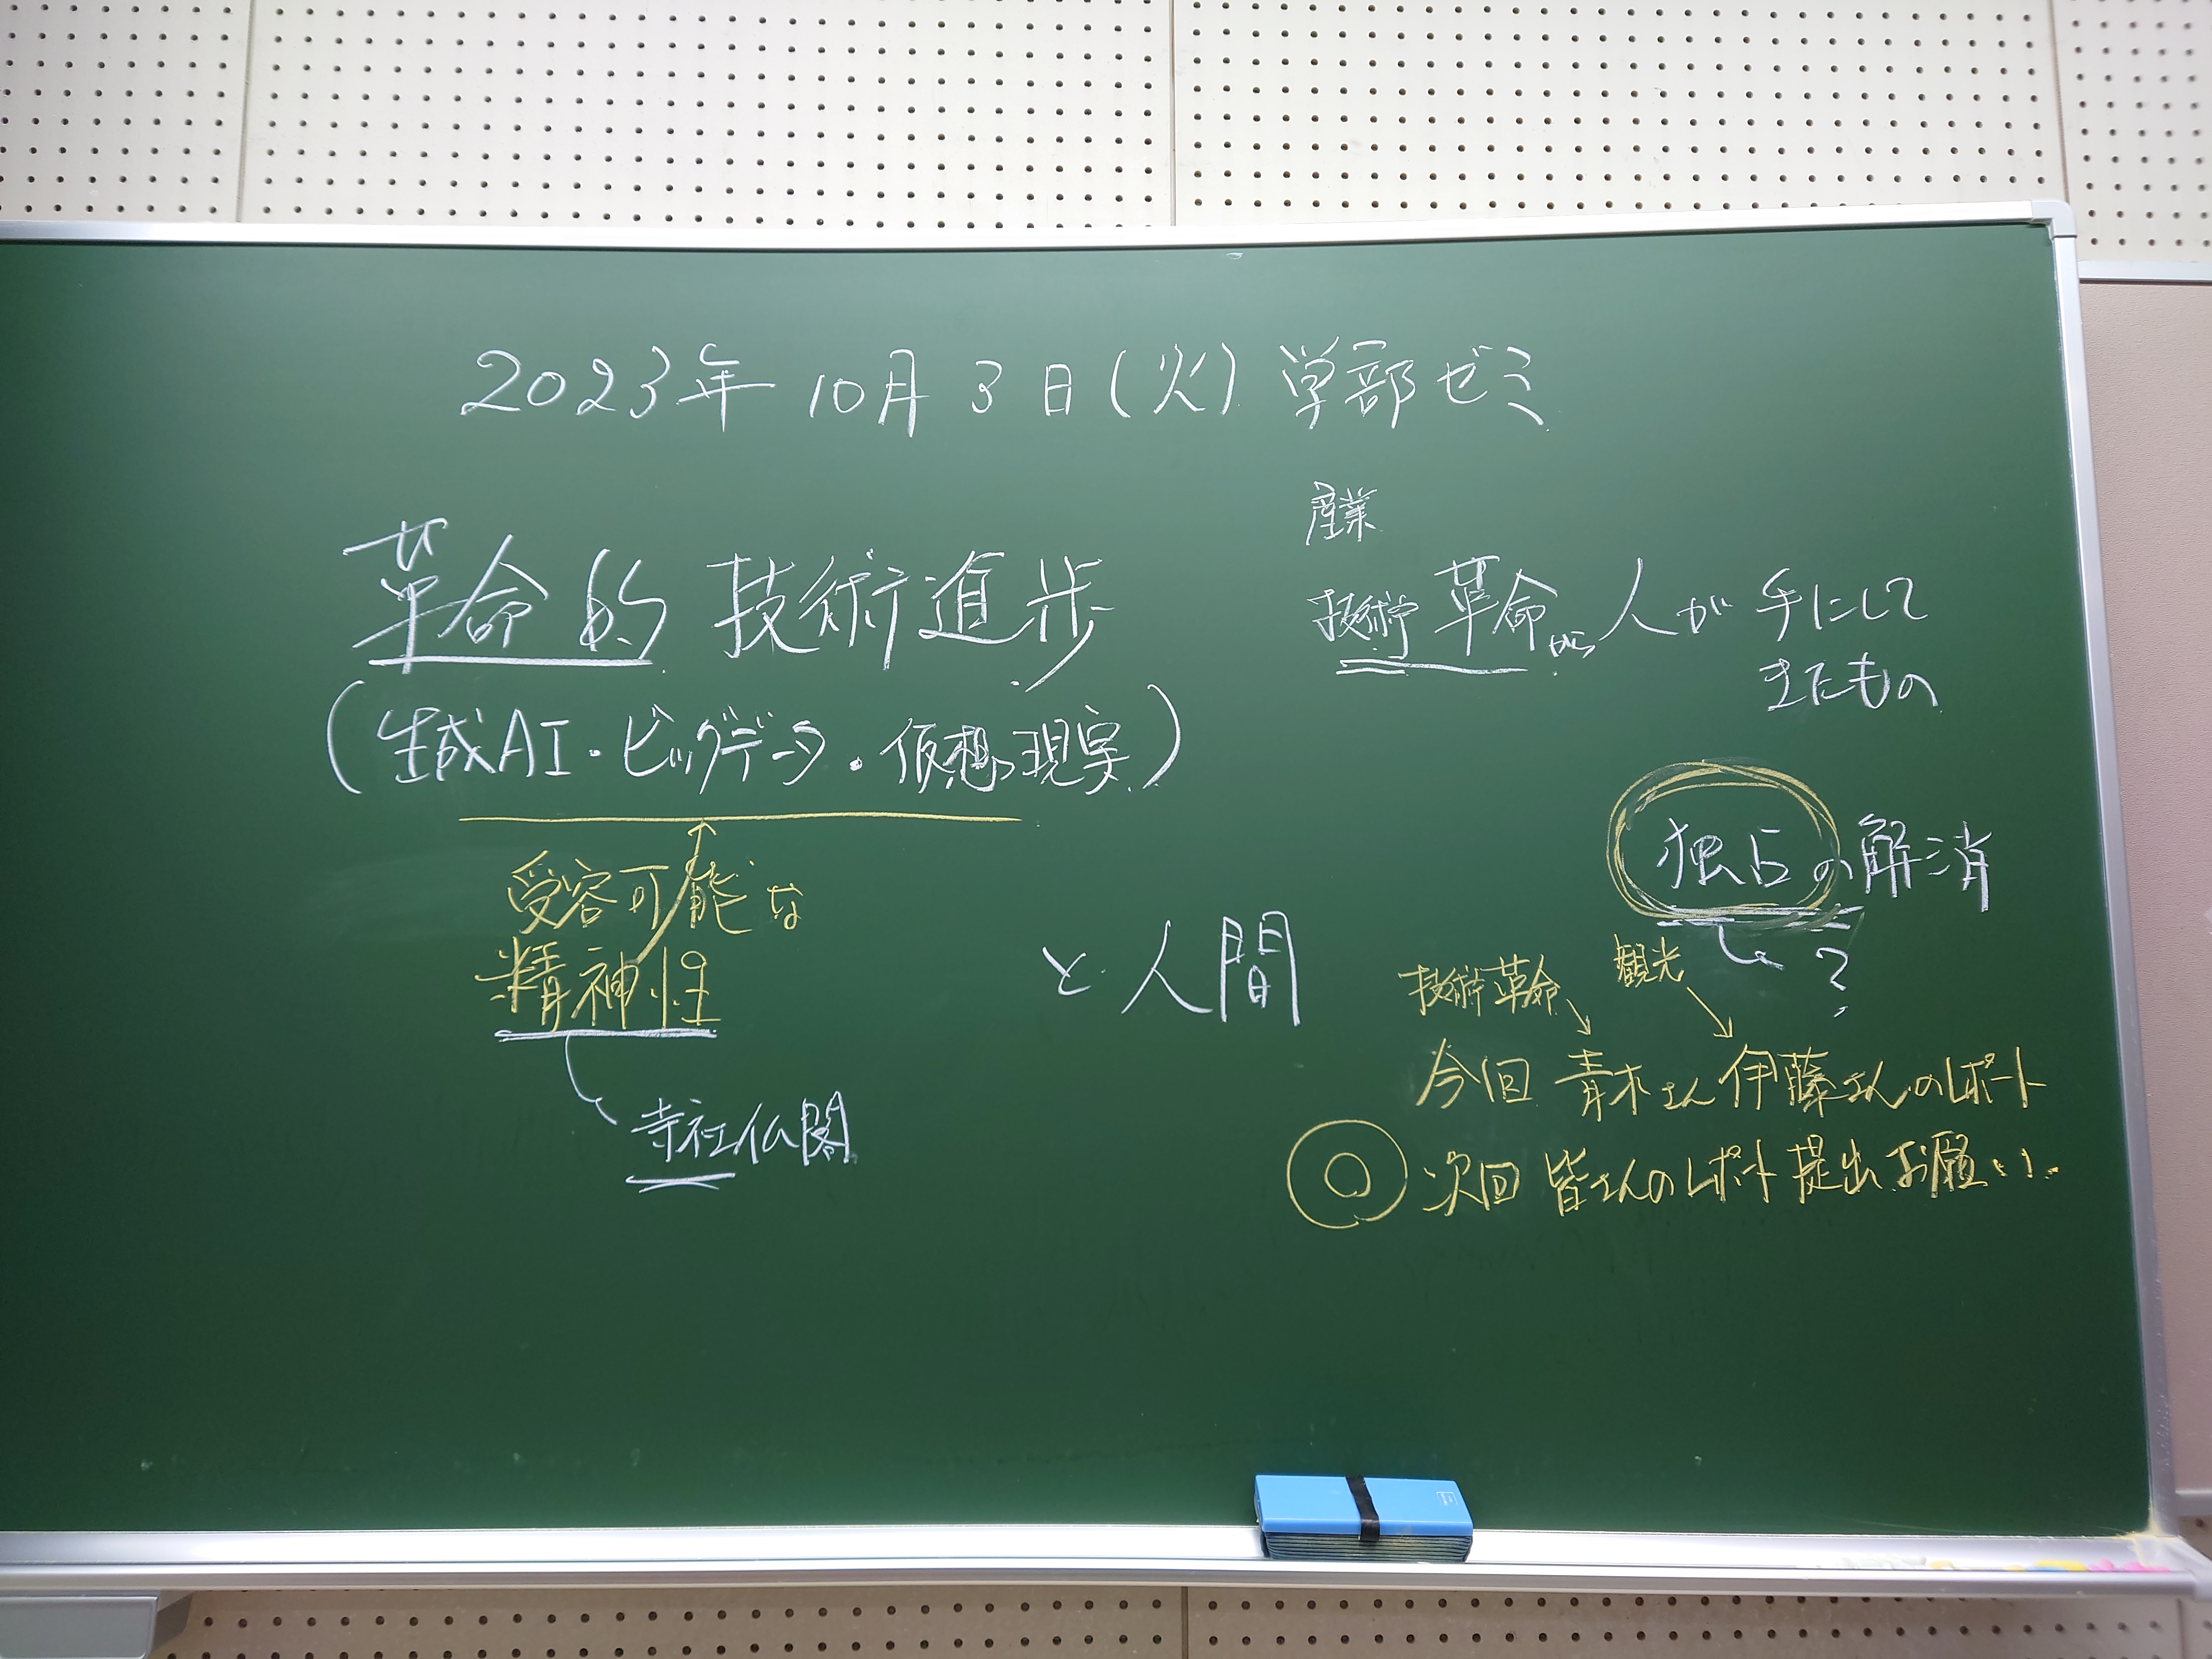 2023年 10月 3日(火) 学部ゼミ
革命的 技術進歩
(生成AI・ビッグデータ・仮想現実)
受容可能な
精神性
寺社仏閣
と人間
産業
技術革命から 人が 手にして
きたもの
独占の解消
?
技術革命 観光
今回 青木さん 伊藤さんのレポート
◎ 次回 皆さんのレポート 提出 お願い!